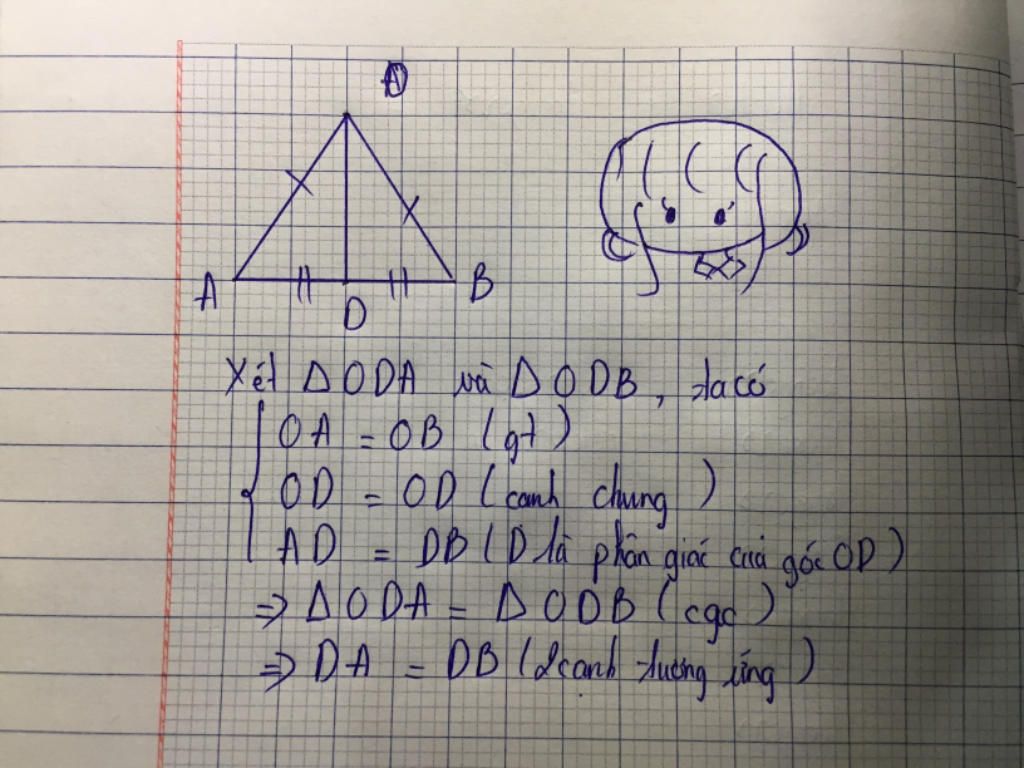 O
A
D
B
Xét Δ ODA và Δ ODB, ta có
OA = OB (gt)
OD = OD (canh chung)
AD = DB (D là phân giác của góc OD)
=> Δ ODA = Δ ODB (cgc)
=> DA = DB (2 canh tương ứng)